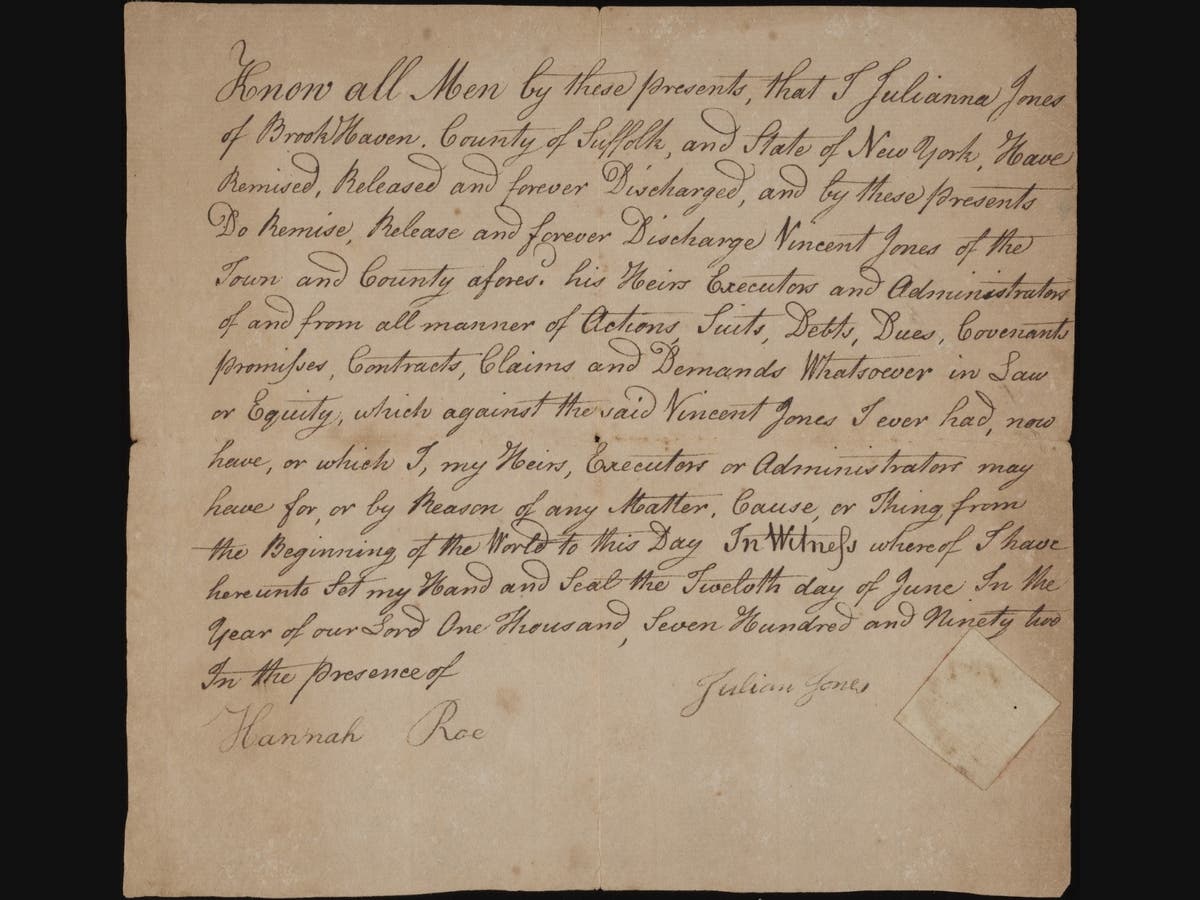 Know all Men by these presents, that I Julianna Jones
of BrookHaven. County of Suffolk, and State of New York, Have
Remised, Released and forever Discharged, and by these presents
Do Remise, Release and forever Discharge Vincent Jones of the
Town and County afores.d his Heirs Executors and Administrators
of and from all manner of Actions, Suits, Debts, Dues, Covenants
promiſses, Contracts, Claims and Demands Whatsoever in Law
or Equity, which against the said Vincent Jones I ever had, now
have, or which I, my Heirs, Executors or Administrators may
have for, or by Reason of any Matter, Cause, or Thing from
the Beginning of the World to this Day In Witneſs whereof I have
hereunto Set my Hand and Seal the Twelvth day of June In the
Year of our Lord One Thousand, Seven Hundred and Ninety two
In the presence of
Julian Jones
Hannah Roe